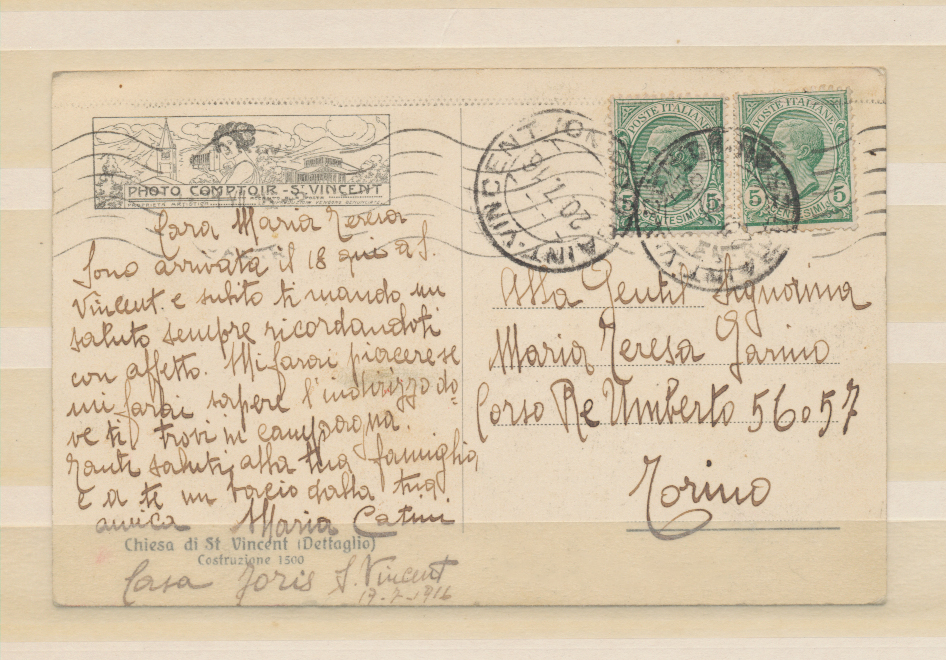 PHOTO COMPTOIR - St VINCENT
PROPRIETÀ ARTISTICA
Cara Maria Teresa
Sono arrivata il 18 qui a S.
Vincent e subito ti mando un
saluto sempre ricordandoti
con affetto. Mi farai piacere se
mi farai sapere l'indirizzo do-
ve ti trovi in campagna.
Tanti saluti alla tua famiglia
e a te un bacio dalla tua
amica Maria
Chiesa di St Vincent (Dettaglio)
Costruzione 1300
Casa Joris S. Vincent
19-7-1916
POSTE ITALIANE
5 CENTESIMI 5
POSTE ITALIANE
5 CENTESIMI 5
SAINT-VINCENT
20.7.16
SAINT-V
Alla Gentil Signorina
Maria Teresa Garino
Corso Re Umberto 56 o 57
Torino